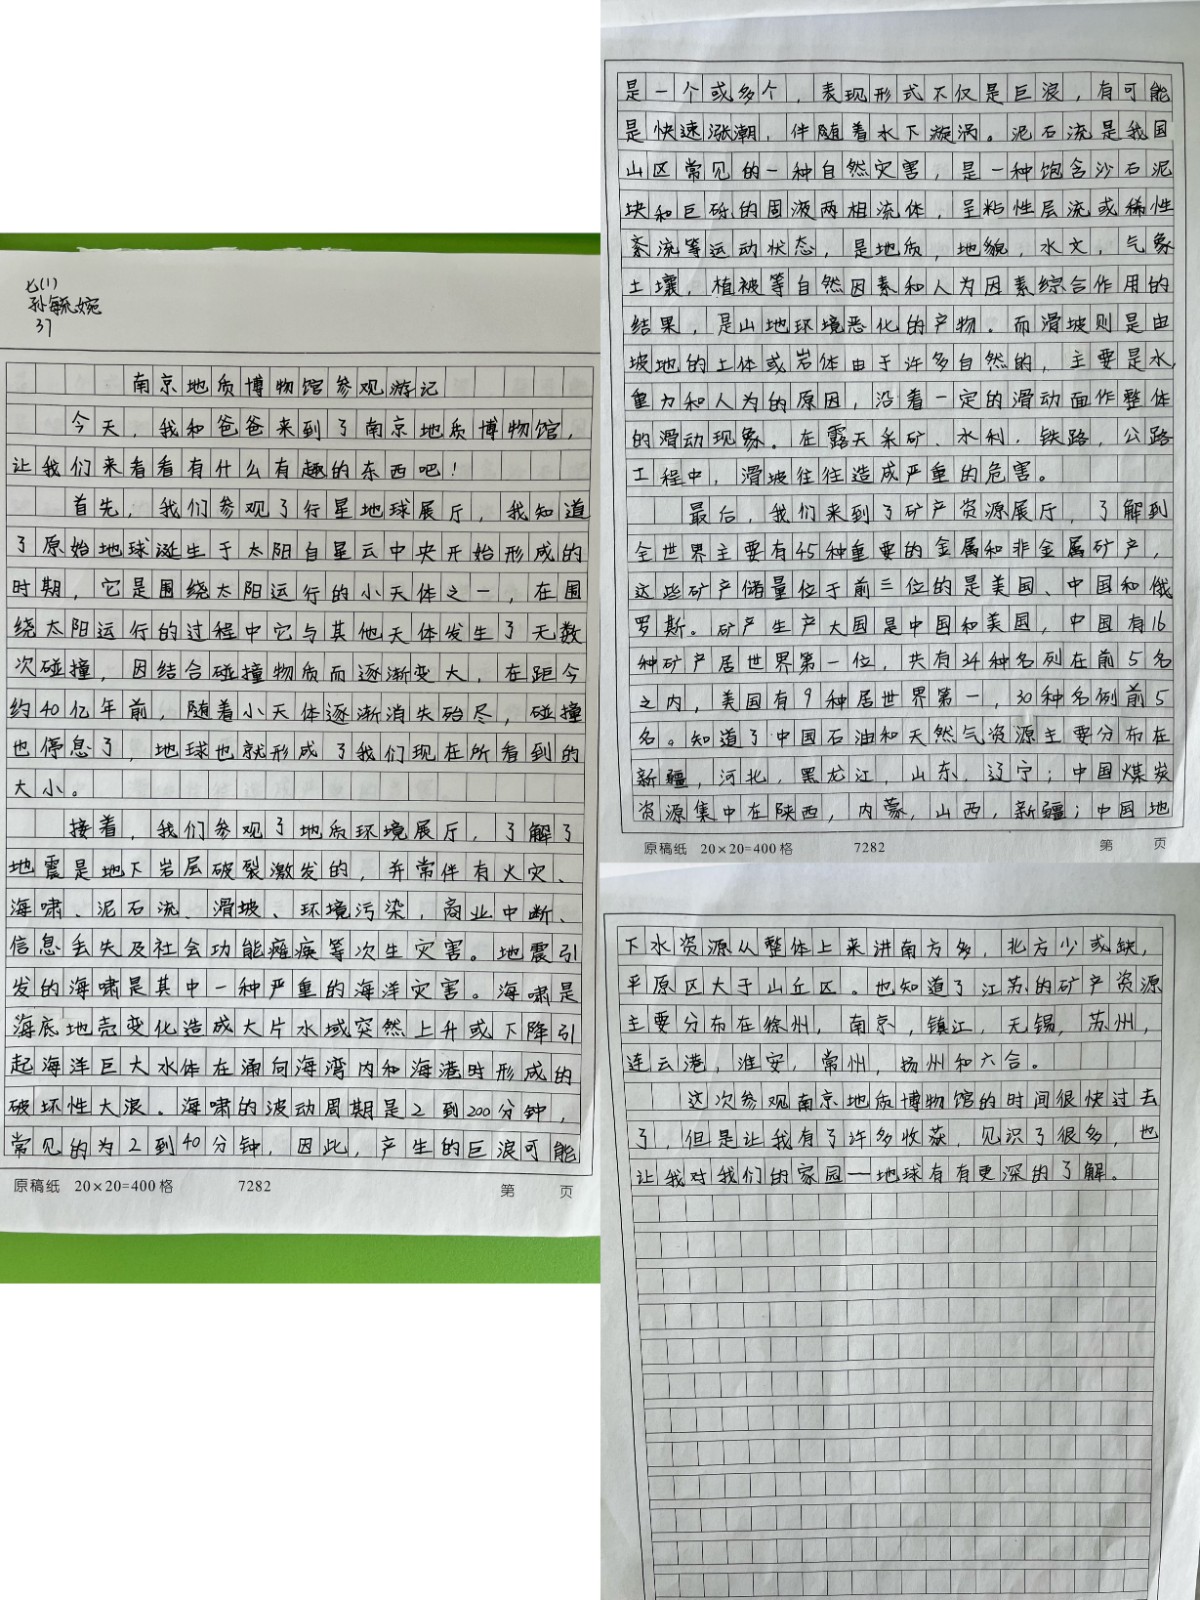 七(1)
孙毓婉
37
南京地质博物馆参观游记
今天，我和爸爸来到了南京地质博物馆，
让我们来看看有什么有趣的东西吧！
首先，我们参观了行星地球展厅，我知道
了原始地球诞生于太阳自星云中央开始形成的
时期，它是围绕太阳运行的小天体之一，在围
绕太阳运行的过程中它与其他天体发生了无数
次碰撞，因结合碰撞物质而逐渐变大，在距今
约40亿年前，随着小天体逐渐消失殆尽，碰撞
也停息了，地球也就形成了我们现在所看到的
大小。
接着，我们参观了地质环境展厅，了解了
地震是地下岩层破裂激发的，并常伴有火灾、
海啸、泥石流、滑坡、环境污染，商业中断、
信息丢失及社会功能瘫痪等次生灾害。地震引
发的海啸是其中一种严重的海洋灾害。海啸是
海底地壳变化造成大片水域突然上升或下降引
起海洋巨大水体在涌向海湾内和海港时形成的
破坏性大浪。海啸的波动周期是2到200分钟，
常见的为2到40分钟，因此，产生的巨浪可能
原稿纸 20×20=400格 7282 第 页
是一个或多个，表现形式不仅是巨浪，有可能
是快速涨潮，伴随着水下漩涡。泥石流是我国
山区常见的一种自然灾害，是一种饱含沙石泥
块和巨砾的固液两相流体，呈粘性层流或稀性
紊流等运动状态，是地质，地貌，水文，气象
土壤，植被等自然因素和人为因素综合作用的
结果，是山地环境恶化的产物。而滑坡则是由
坡地的土体或岩体由于许多自然的，主要是水，
重力和人为的原因，沿着一定的滑动面作整体
的滑动现象。在露天采矿、水利，铁路，公路
工程中，滑坡往往造成严重的危害。
最后，我们来到了矿产资源展厅，了解到
全世界主要有45种重要的金属和非金属矿产，
这些矿产储量位于前三位的是美国、中国和俄
罗斯。矿产生产大国是中国和美国，中国有16
种矿产居世界第一位，共有34种名列在前5名
之内，美国有9种居世界第一，30种名例前5
名。知道了中国石油和天然气资源主要分布在
新疆，河北，黑龙江，山东，辽宁；中国煤炭
资源集中在陕西，内蒙，山西，新疆；中国地
原稿纸 20×20=400格 7282 第 页
下水资源从整体上来讲南方多，北方少或缺，
平原区大于山丘区。也知道了江苏的矿产资源
主要分布在徐州，南京，镇江，无锡，苏州，
连云港，淮安，常州，扬州和六合。
这次参观南京地质博物馆的时间很快过去
了，但是让我有了许多收获，见识了很多，也
让我对我们的家园—地球有有更深的了解。